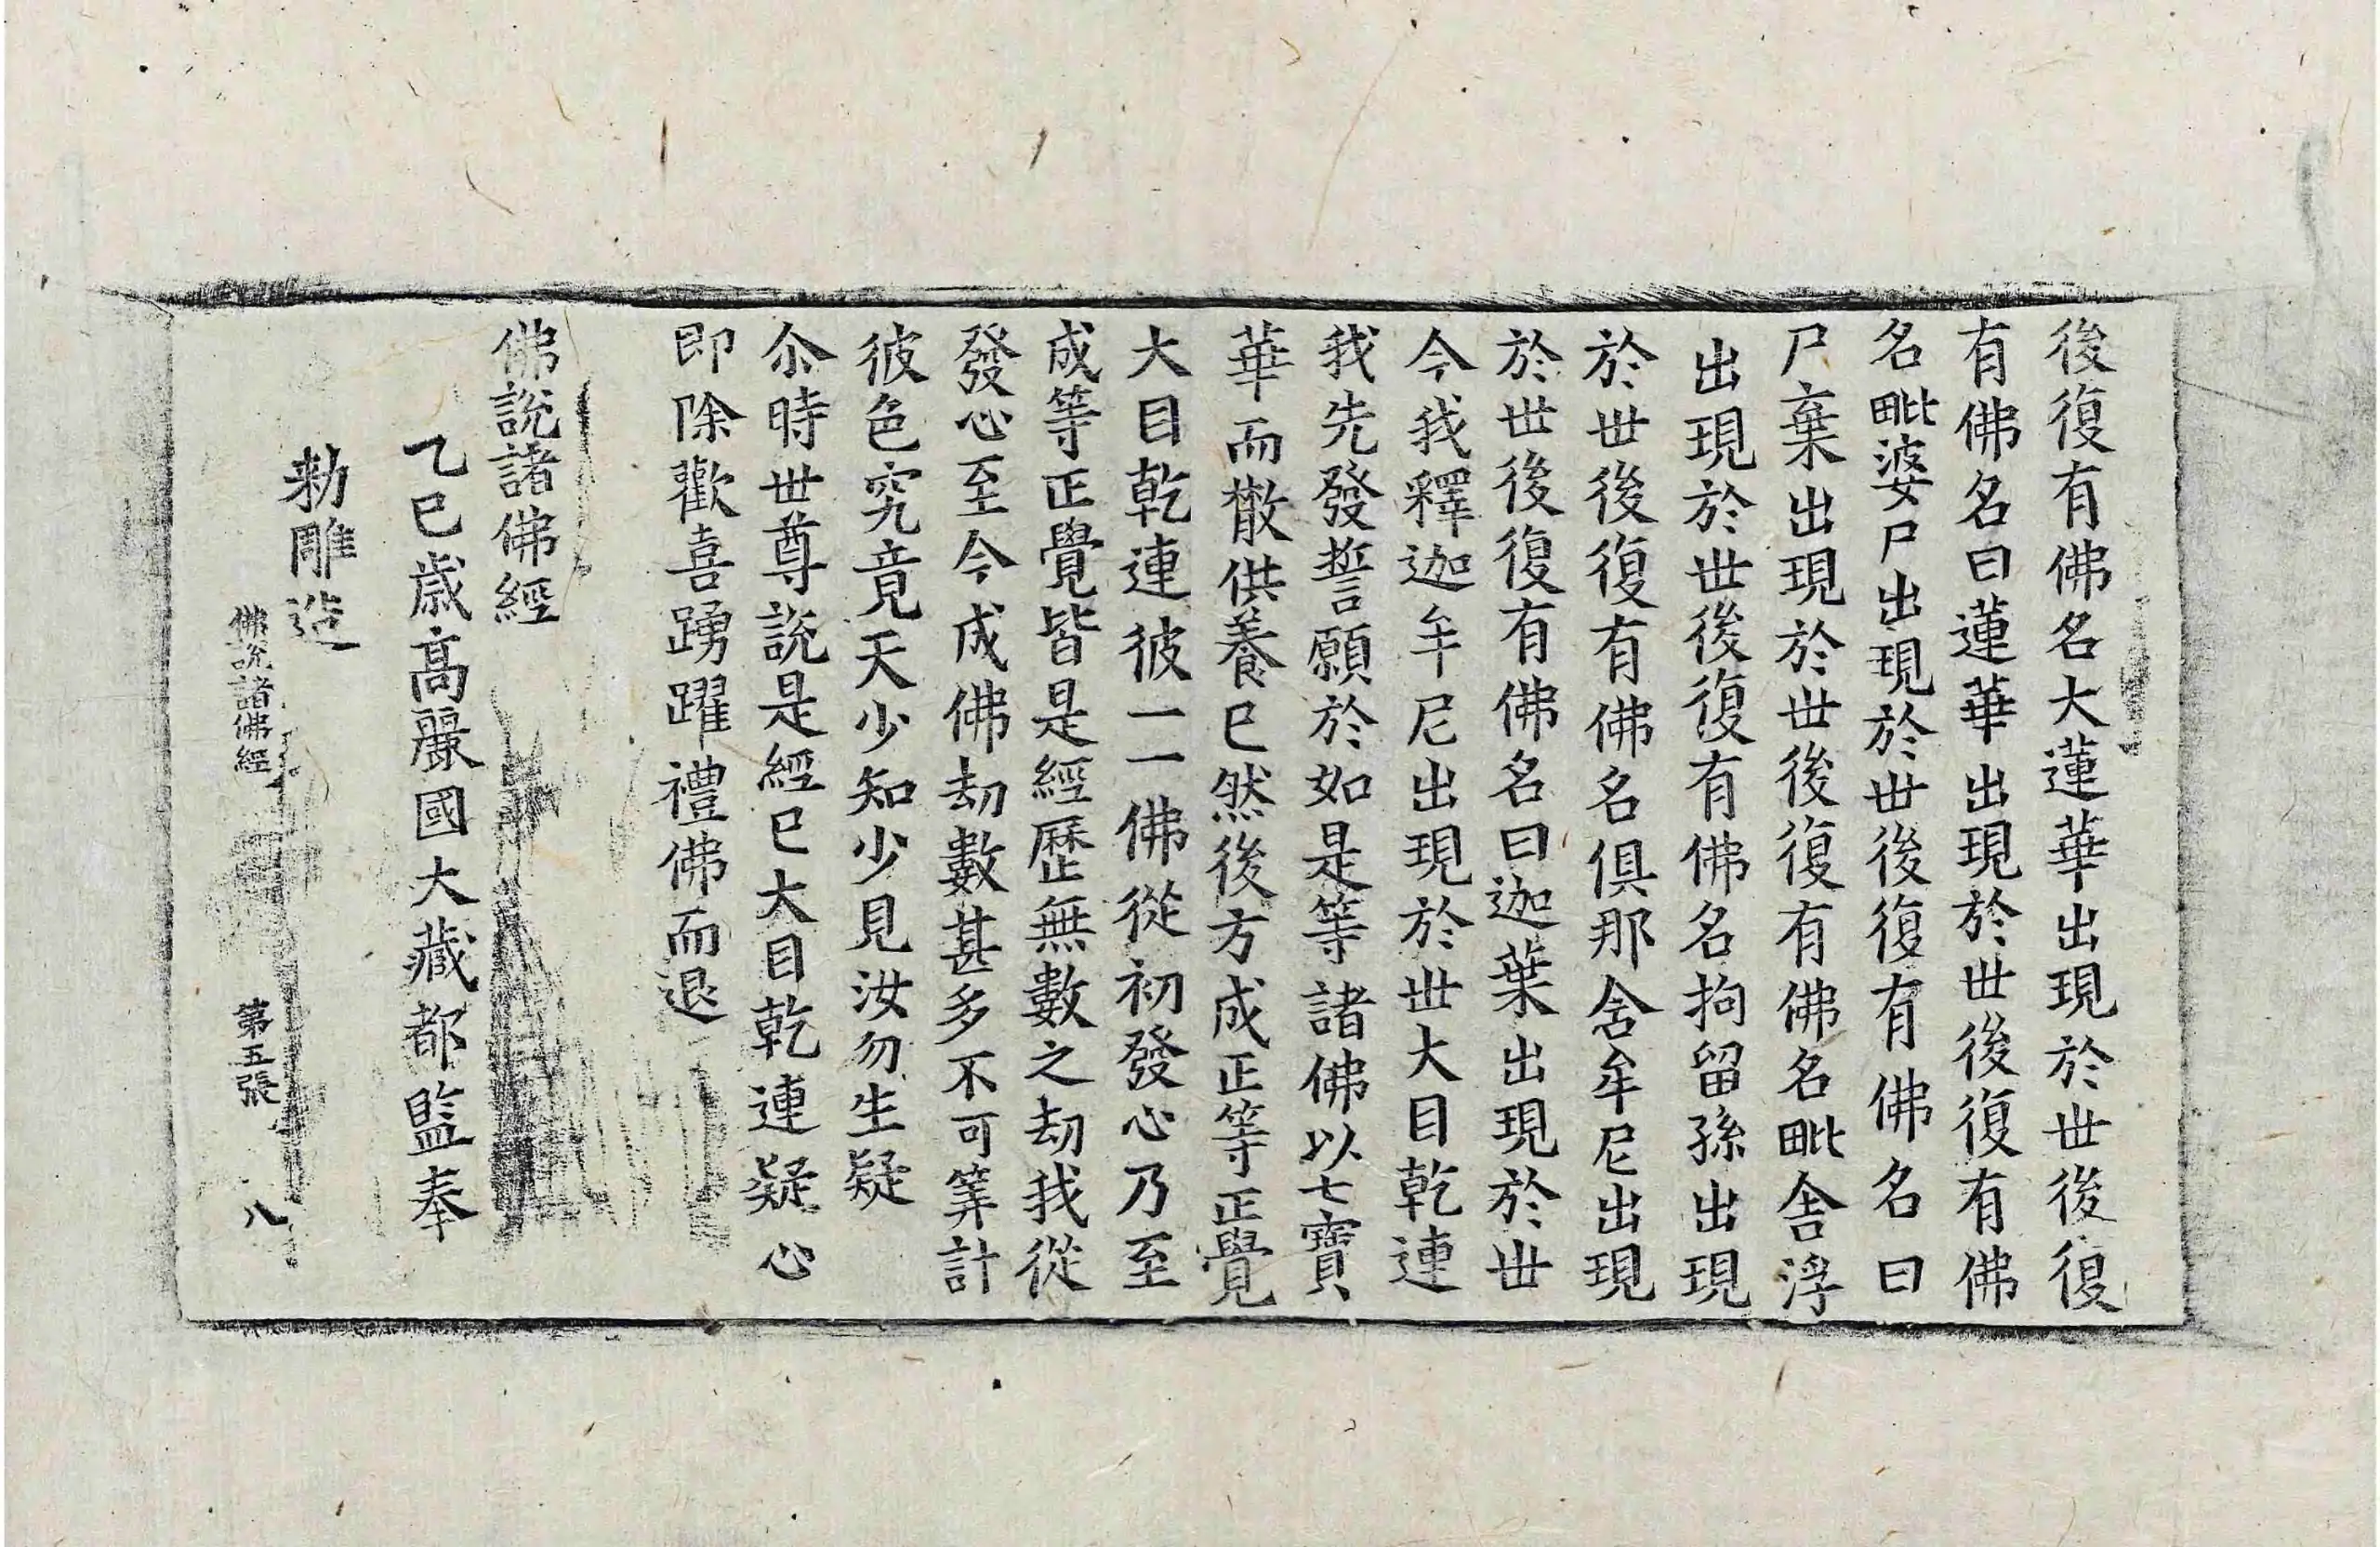 後復有佛名大蓮華出現於世後復
有佛名曰蓮華出現於世後復有佛
名毗婆尸出現於世後復有佛名曰
尸棄出現於世後復有佛名毗舍浮
出現於世後復有佛名拘留孫出現
於世後復有佛名俱那舍牟尼出現
於世後復有佛名曰迦葉出現於世
今我釋迦牟尼出現於世大目乾連
我先發誓願於如是等諸佛以七寶
華而散供養已然後方成正等正覺
大目乾連彼一一佛從初發心乃至
成等正覺皆是經歷無數之劫我從
發心至今成佛劫數甚多不可筭計
彼色究竟天少知少見汝勿生疑
尒時世尊說是經已大目乾連疑心
即除歡喜踴躍禮佛而退
佛說諸佛經
乙巳歲高麗國大藏都監奉
勑雕造
佛說諸佛經 第五張 八